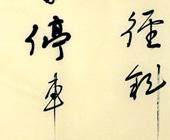 徑斜
停車